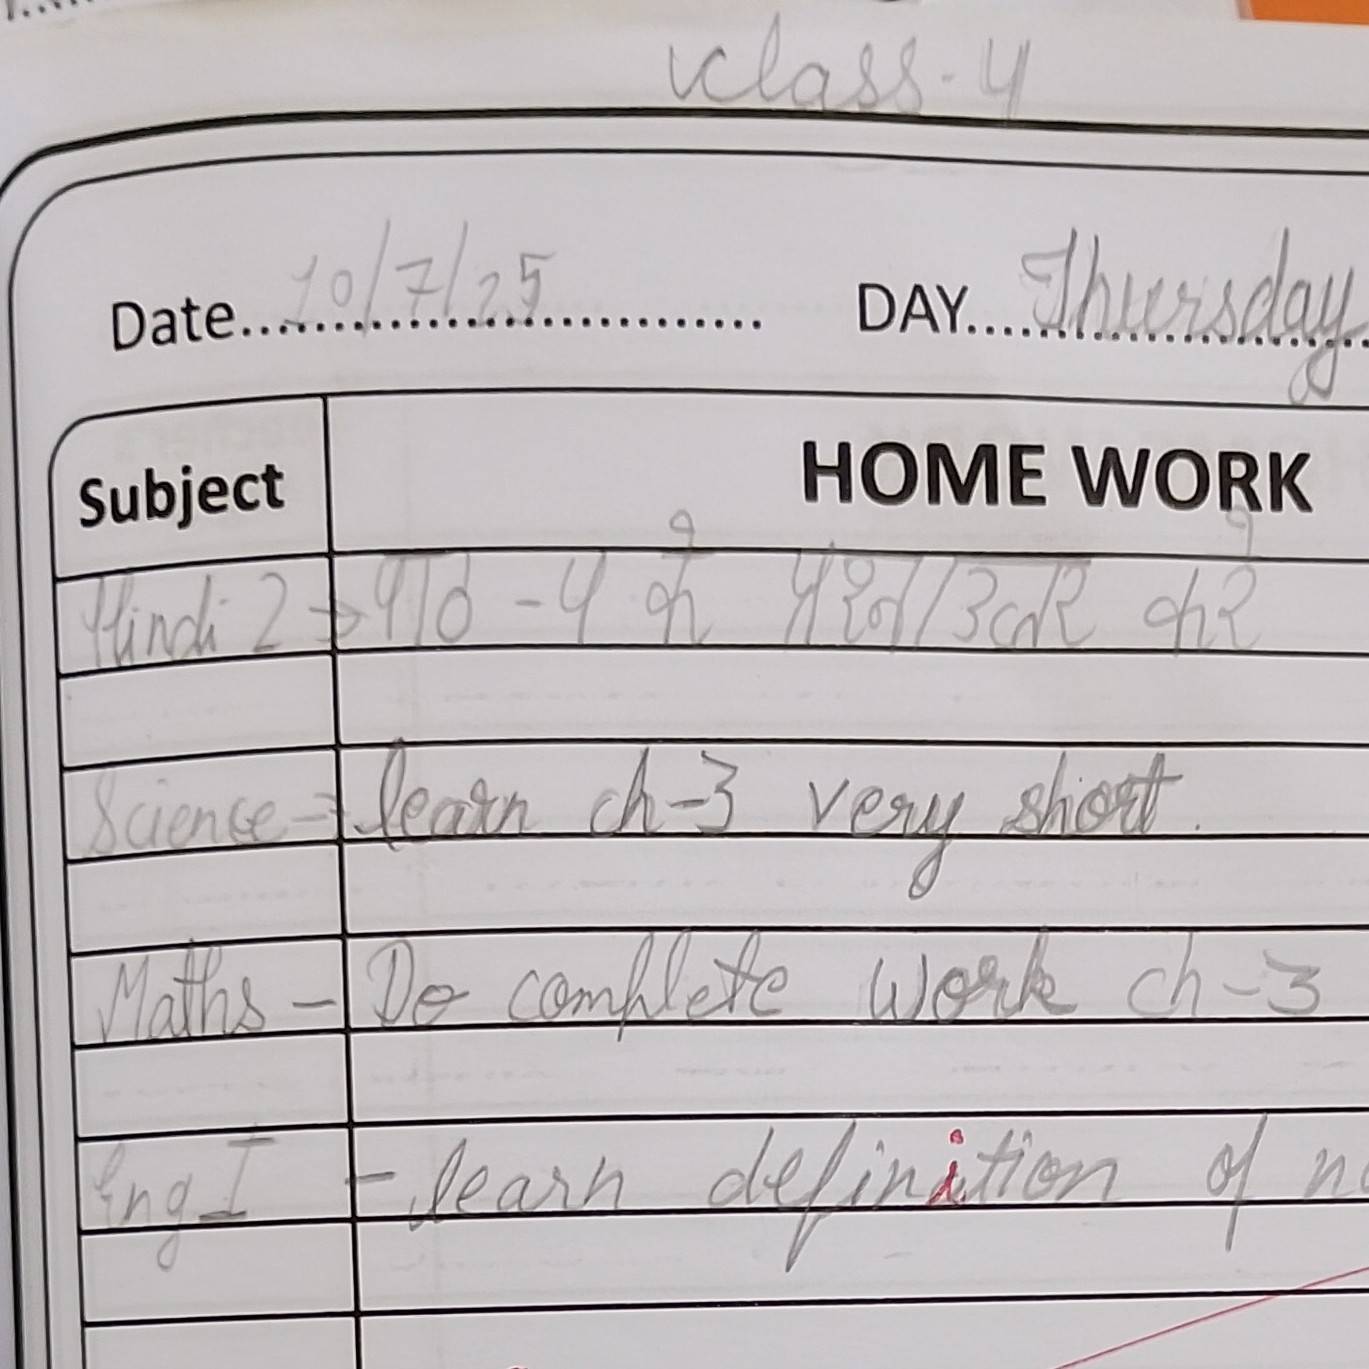 Class-4
Date 10/7/25 DAY Thursday
Subject HOME WORK
Hindi 2 → पाठ - 4 के प्रश्न/उत्तर करें
Science → learn ch-3 very short.
Maths - Do complete work ch-3
Eng I - learn definition of